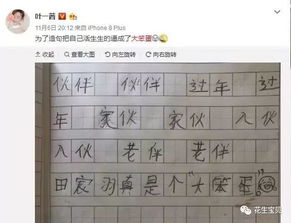 叶一茜
11月6日 20:12 来自 iPhone 8 Plus
为了造句把自己活生生的逼成了大笨蛋
收起 查看大图 向左旋转 向右旋转
伙伴 伙伴 过年 过
年 家伙 家伙 入伙
入伙 老伴 老伴
田宸羽真是个"大笨蛋"
花生宝贝